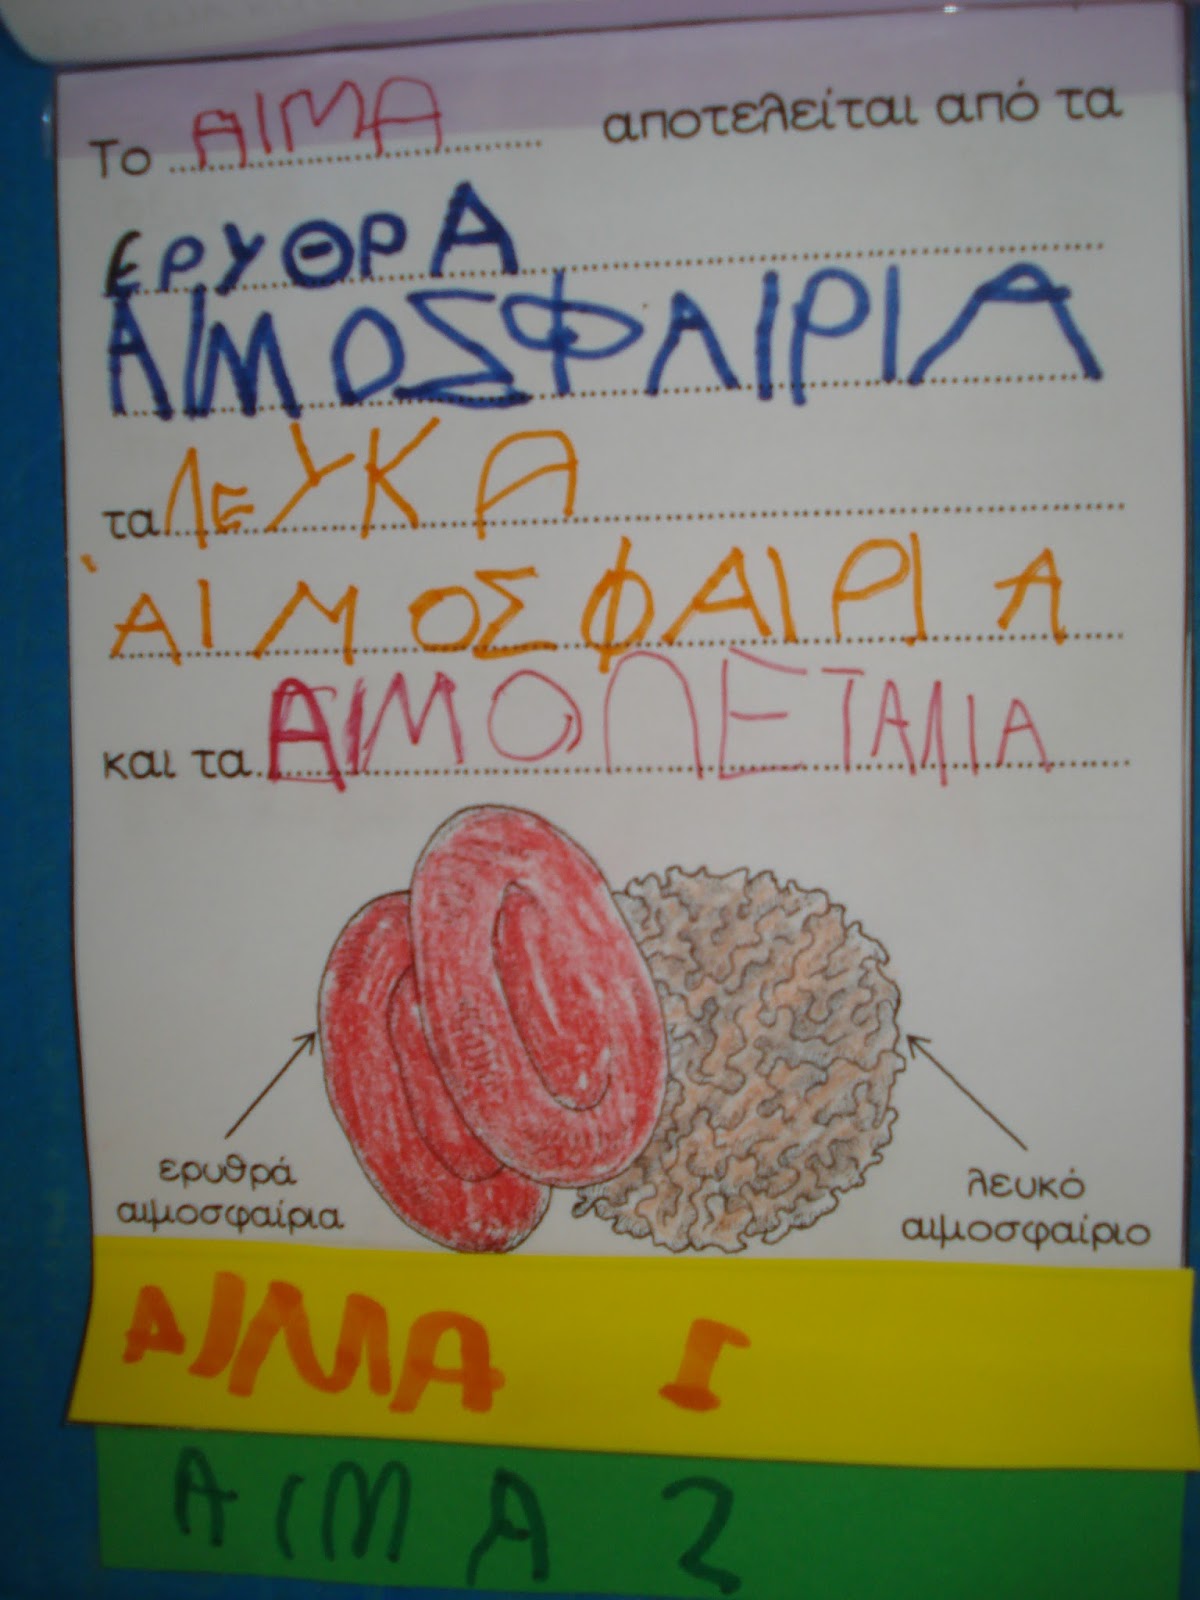 Το ΑΙΜΑ αποτελείται από τα
ΕΡΥΘΡΑ
ΑΙΜΟΣΦΑΙΡΙΑ
τα ΛΕΥΚΑ
ΑΙΜΟΣΦΑΙΡΙΑ
και τα ΑΙΜΟΠΕΤΑΛΙΑ
ερυθρά
αιμοσφαίρια
λευκό
αιμοσφαίριο
ΑΙΜΑ 1
ΑΙΜΑ 2